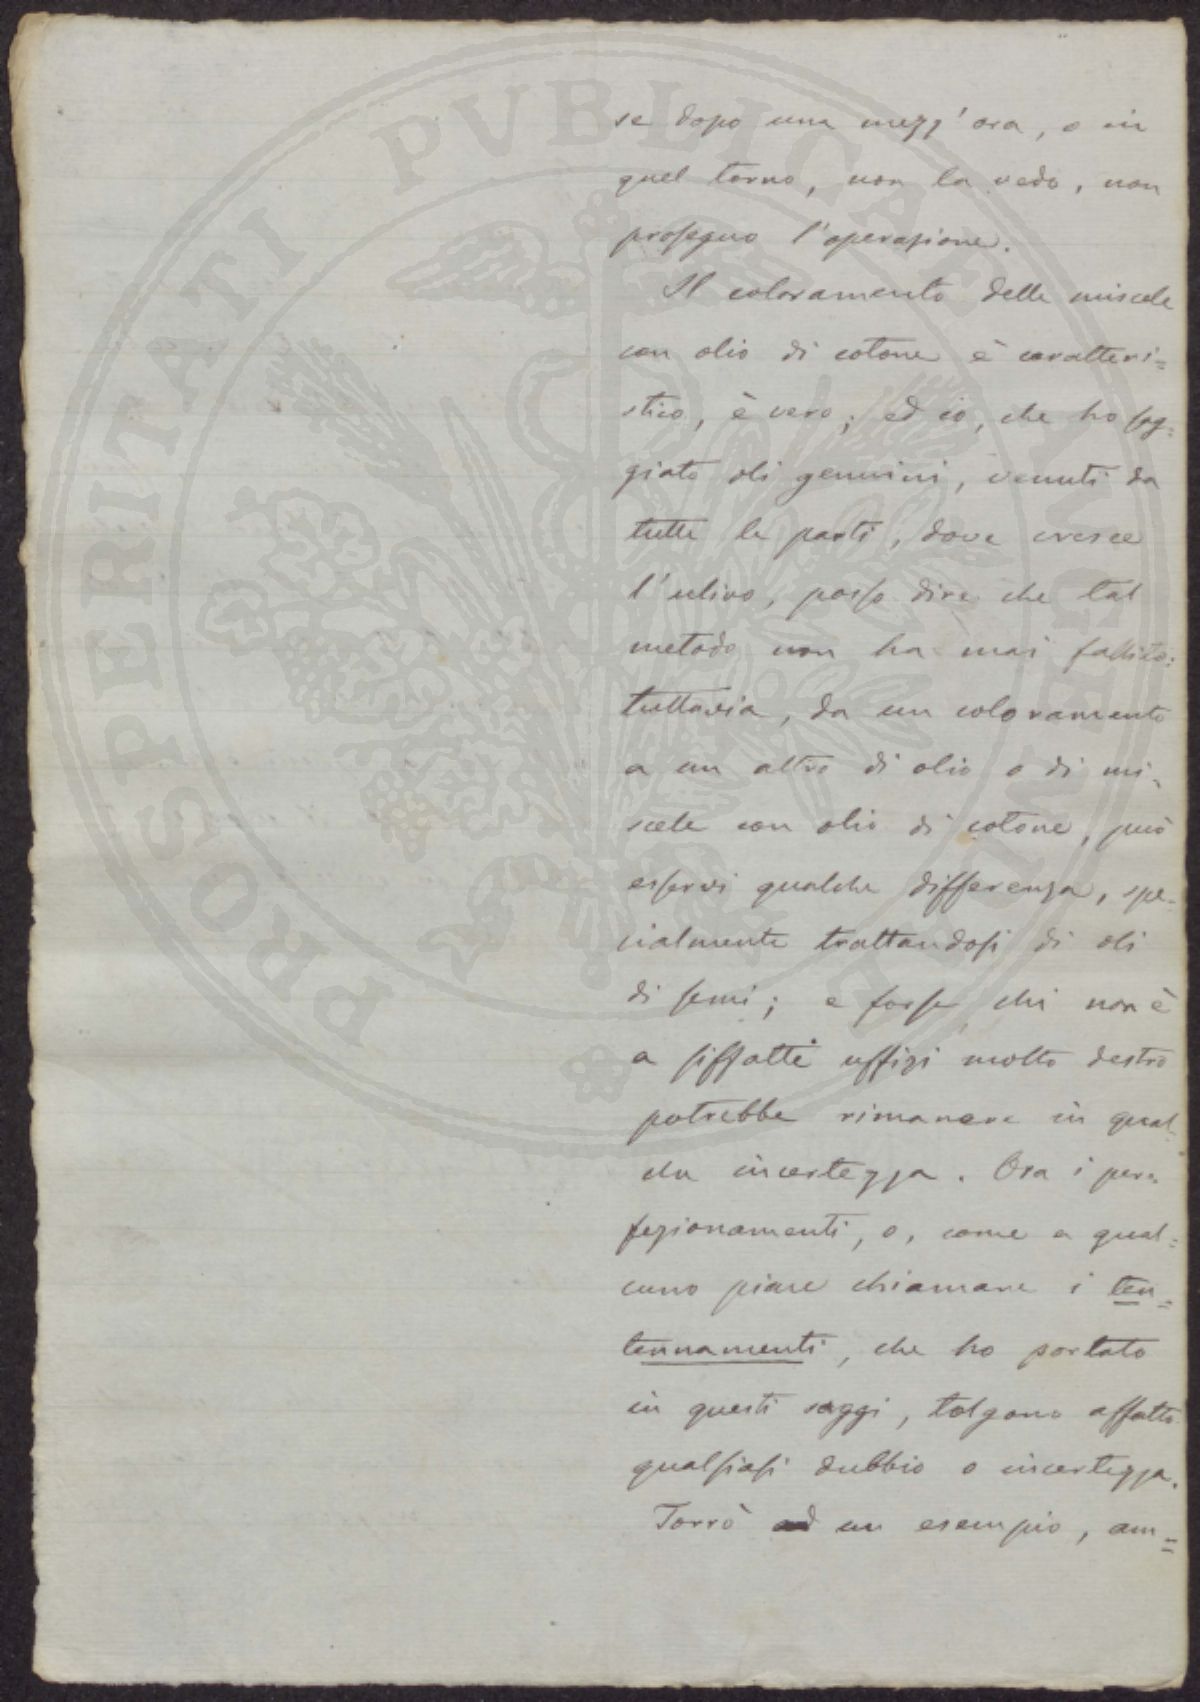 se dopo una mezz'ora, o in
quel torno, non la vedo, non
proseguo l'operazione.
Il coloramento delle miscele
con olio di cotone è caratteri=
stico, è vero; ed io, che ho sag=
giato oli genuini, venuti da
tutte le parti, dove cresce
l'ulivo, posso dire che tal
metodo non ha mai fallito:
tuttavia, da un coloramento
a un altro di olio o di mi-
scele con olio di cotone, può
esservi qualche differenza, spe-
cialmente trattandosi di oli
di semi; e forse chi non è
a siffatti uffizi molto destro
potrebbe rimanere in qual-
che incertezza. Ora i per=
fezionamenti, o, come a qual=
cuno piace chiamare i ten=
tennamenti, che ho portato
in questi saggi, tolgono affatto
qualsiasi dubbio o incertezza.
Torrò ad un esempio, am=
PROSPERITATI PVBLICAE AVGENDAE